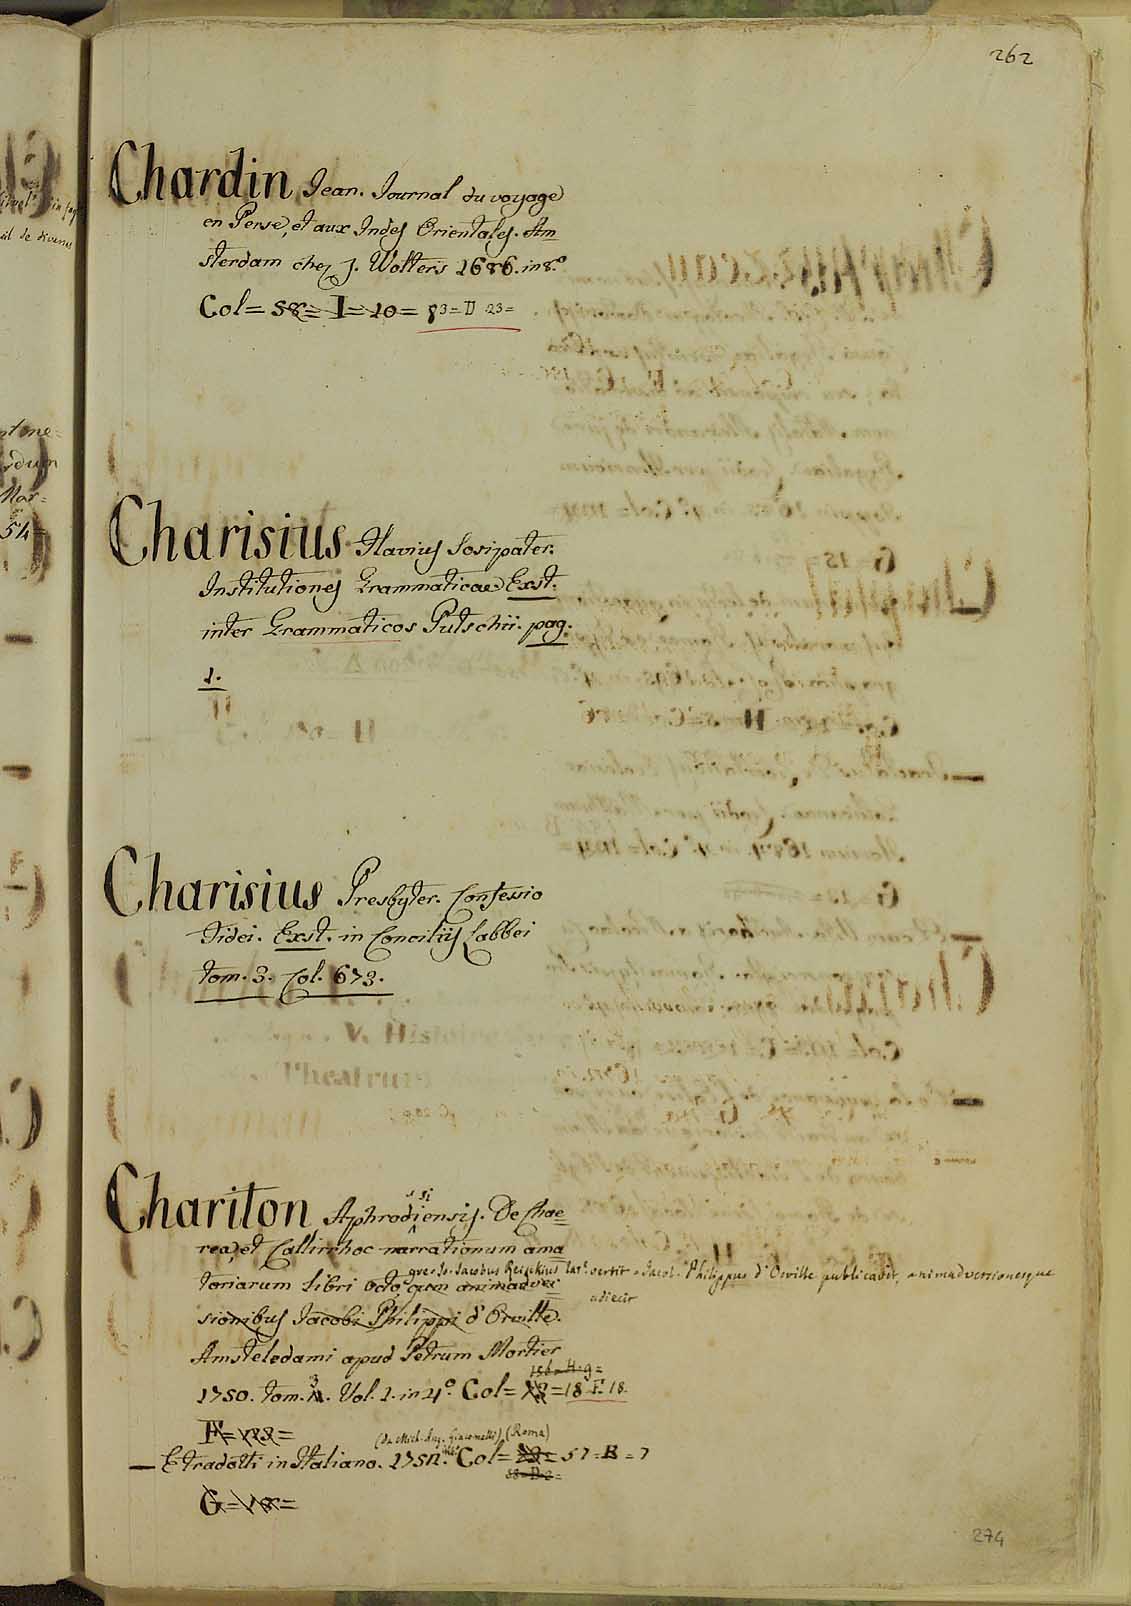 262
Chardin Jean. Journal du voyage
en Perse, et aux Indes Orientales. Am=
sterdam chez J. Wolters 1686. in 8.°
Col= 58= I= 10= 83= D 23=
Charisius Flavius Sosipater.
Institutiones Grammaticae Exst.
inter Grammaticos Putschii. pag.
1.
Charisius Presbyter. Confessio
Fidei. Exst. in Conciliis Labbei
tom. 3. Col. 673.
Chariton Aphrodisiensis. De Chae=
rea, et Callirrhoe narrationum ama
toriarum libri octo, cum animadver=
graec. Jo. Jacobus Reiskius lat. vertit. Jacob. Philippus d'Orville publicavit, animadversionesque
adiecit
sionibus Jacobi Philippi d'Orville.
Amsteledami apud Petrum Mortier
1750. tom. 3. Vol. 1. in 4°. Col= 18 F. 18.
156= H= 9=
F= =
(da Mich. Ang. Giacomelli) (Roma)
— E tradotti in Italiano. 1752. Col= 57= B= 7
88= D= 2=
G= 18=
274